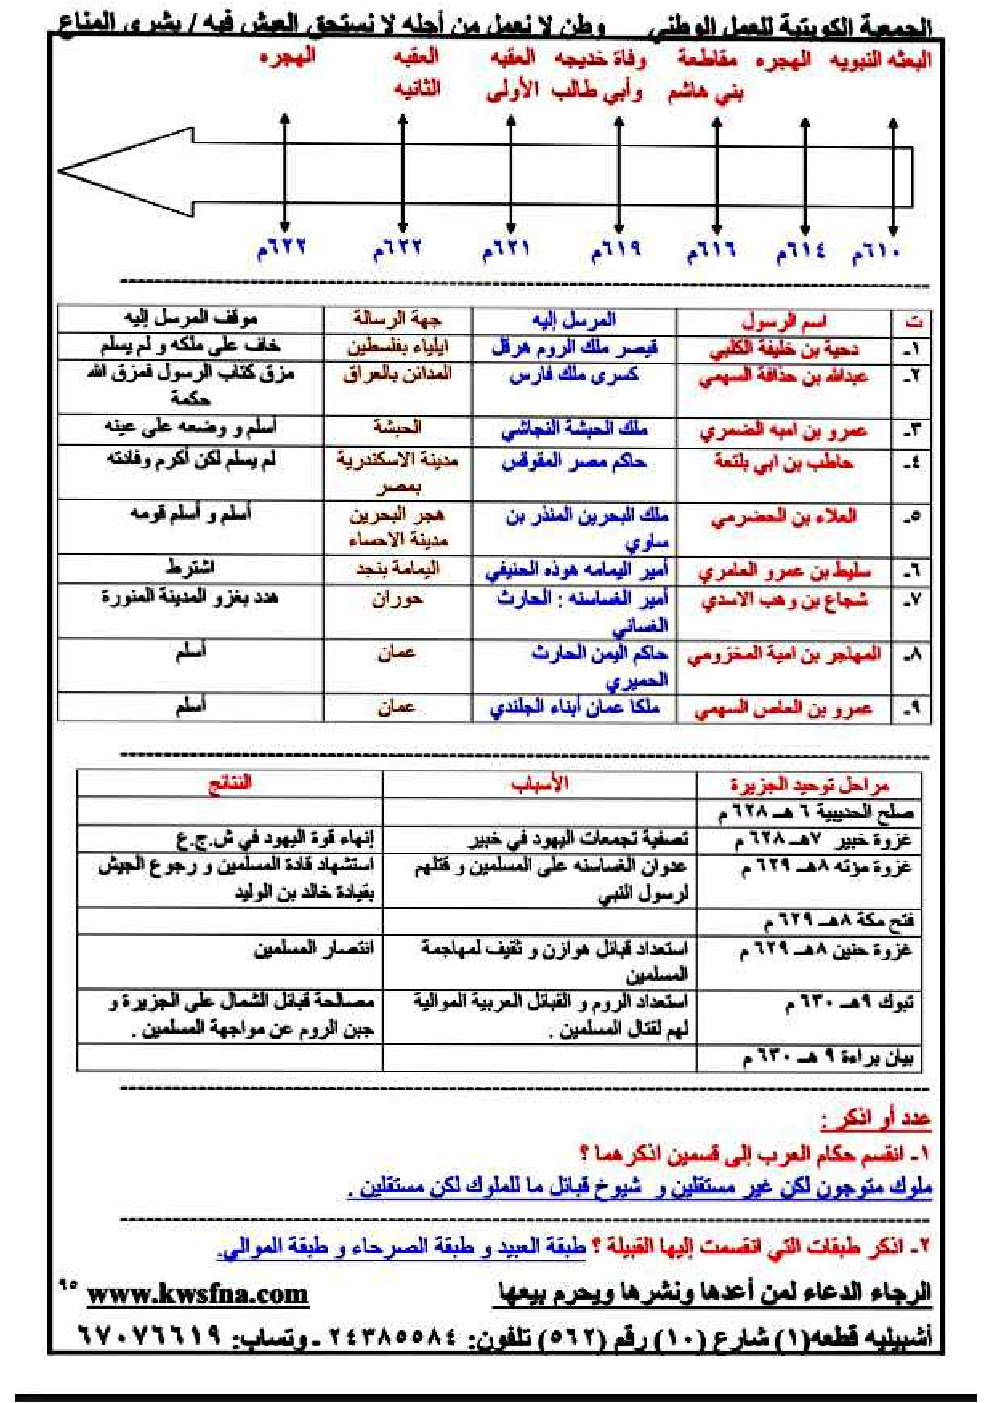 الجمعية الكويتية للعمل الوطني وطن لا نعمل من أجله لا نستحق العيش فيه / بشرى المناع
البعثه النبويه الهجره مقاطعة وفاة خديجه العقبه العقبه الهجره
بني هاشم وأبي طالب الأولى الثانيه
٦١٠م ٦١٤م ٦١٦م ٦١٩م ٦٢١م ٦٢٢م ٦٢٢م
ت اسم الرسول المرسل إليه جهة الرسالة موقف المرسل إليه
١- دحية بن خليفة الكلبي قيصر ملك الروم هرقل ايلياء بفلسطين خاف على ملكه و لم يسلم
٢- عبدالله بن حذافة السهمي كسرى ملك فارس المدائن بالعراق مزق كتاب الرسول فمزق الله
حكمة
٣- عمرو بن اميه الضمري ملك الحبشة النجاشي الحبشة أسلم و وضعه على عينه
٤- حاطب بن ابي بلتعة حاكم مصر المقوقس مدينة الاسكندرية لم يسلم لكن أكرم وفادته
بمصر
٥- العلاء بن الحضرمي ملك البحرين المنذر بن هجر البحرين أسلم و أسلم قومه
ساوي مدينة الاحساء
٦- سليط بن عمرو العامري أمير اليمامه هوذه الحنيفي اليمامة بنجد اشترط
٧- شجاع بن وهب الاسدي أمير الغساسنه : الحارث حوران هدد بغزو المدينة المنورة
الغساني
٨- المهاجر بن امية المخزومي حاكم اليمن الحارث عمان أسلم
الحميري
٩- عمرو بن العاص السهمي ملكا عمان أبناء الجلندي عمان أسلم
مراحل توحيد الجزيرة الأسباب النتائج
صلح الحديبية ٦ هـ ٦٢٨ م
غزوة خيبر ٧هـ ٦٢٨ م تصفية تجمعات اليهود في خيبر إنهاء قوة اليهود في ش.ج.ع
غزوة مؤته ٨هـ ٦٢٩ م عدوان الغساسنه على المسلمين و قتلهم استشهاد قادة المسلمين و رجوع الجيش
لرسول النبي بقيادة خالد بن الوليد
فتح مكة ٨هـ ٦٢٩ م
غزوة حنين ٨هـ ٦٢٩ م استعداد قبائل هوازن و ثقيف لمهاجمة انتصار المسلمين
المسلمين
تبوك ٩هـ ٦٣٠ م استعداد الروم و القبائل العربية الموالية مصالحة قبائل الشمال على الجزيرة و
لهم لقتال المسلمين . جبن الروم عن مواجهة المسلمين .
بيان براءة ٩ هـ ٦٣٠ م
عدد أو اذكر :
١- انقسم حكام العرب إلى قسمين اذكرهما ؟
ملوك متوجون لكن غير مستقلين و شيوخ قبائل ما للملوك لكن مستقلين .
٢- اذكر طبقات التي انقسمت إليها القبيلة ؟ طبقة العبيد و طبقة الصرحاء و طبقة الموالي.
الرجاء الدعاء لمن أعدها ونشرها ويحرم بيعها www.kwsfna.com ٩٥
أشبيليه قطعه(١) شارع (١٠) رقم (٥٦٢) تلفون: ٢٤٣٨٥٥٨٤ - وتساب: ٦٧٠٧٦٦١٩